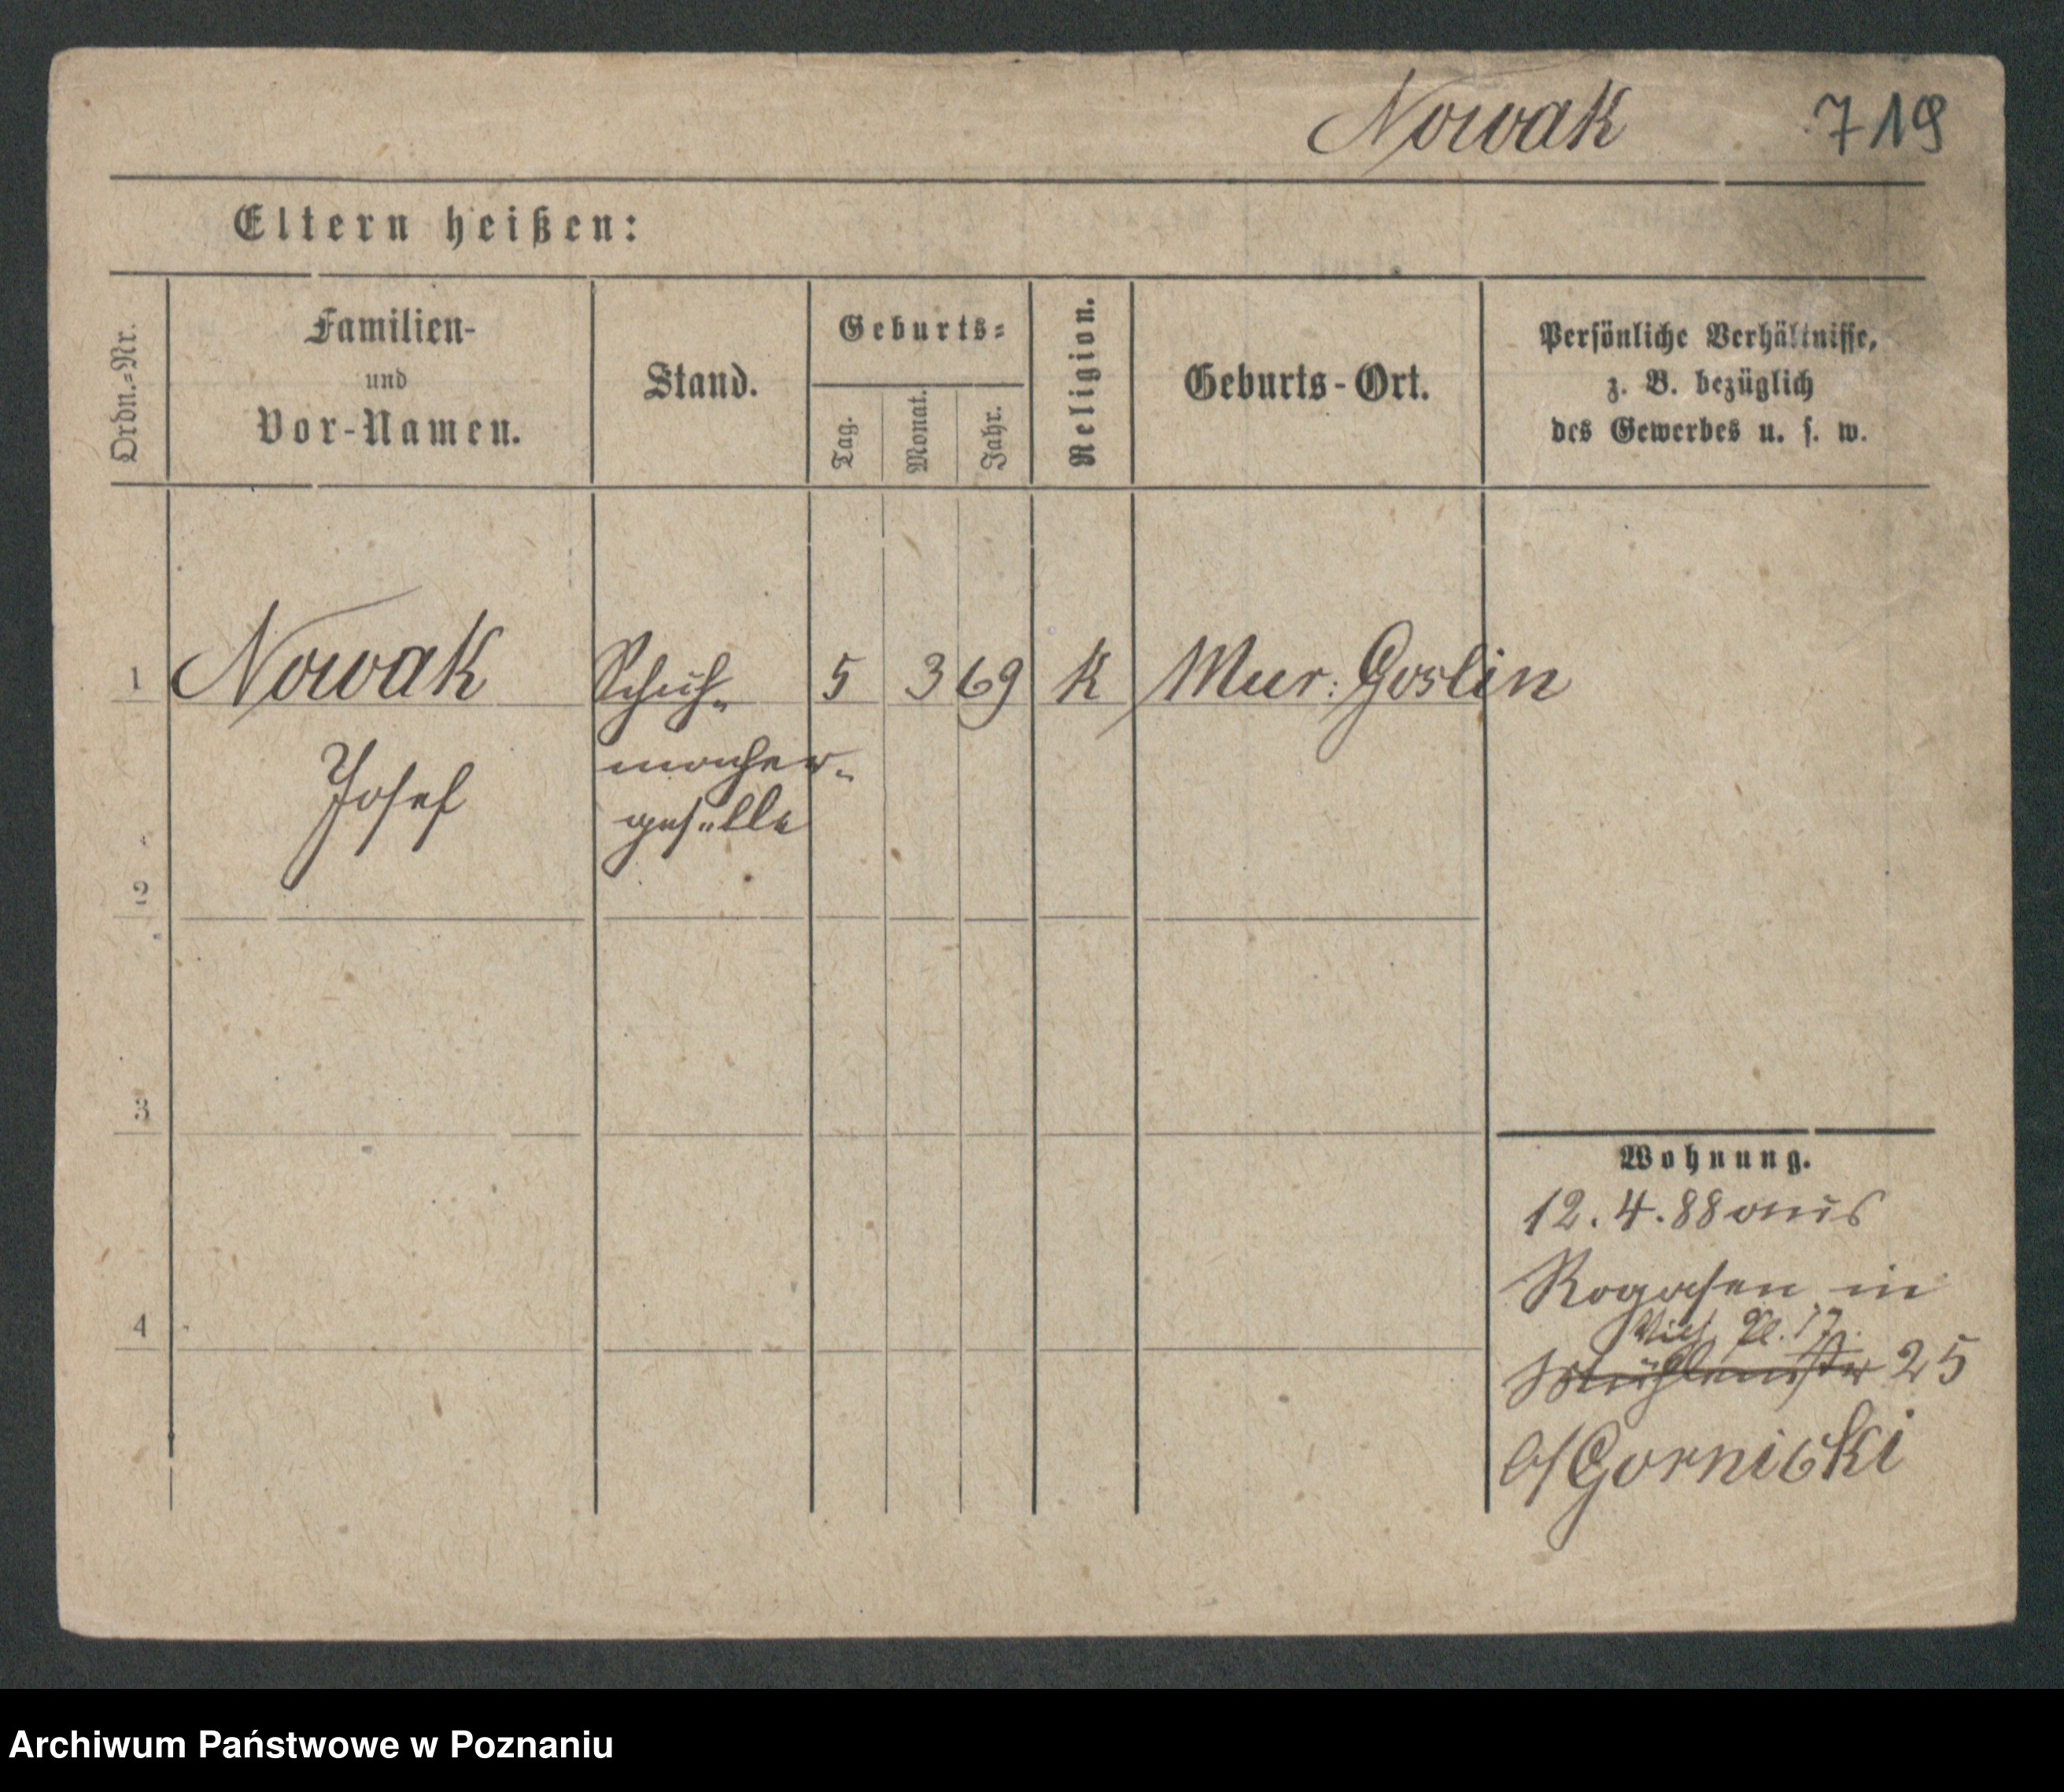 Nowak 719
Eltern heißen:
Ordn.=Nr.
Familien-
und
Vor-Namen.
Stand.
Geburts=
Tag.
Monat.
Jahr.
Religion.
Geburts-Ort.
Persönliche Verhältnisse,
z. B. bezüglich
des Gewerbes u. s. w.
1 Nowak Schuh- 5 3 69 K Mur: Goslin
macher-
Josef
geselle
2
3
Wohnung.
12.4.88 aus
Rogasen in
4
Pl. 17
Mühlenstr 25
b/Gornicki
Archiwum Państwowe w Poznaniu